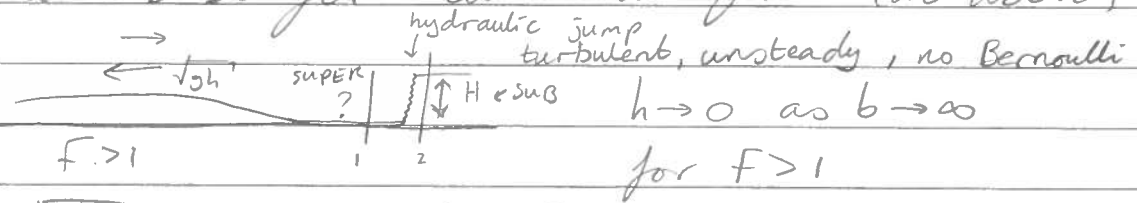 hydraulic jump
turbulent, unsteady, no Bernoulli
√gh
SUPER
?
H
SUB
h → 0 as b → ∞
F > 1
1 2
for F > 1